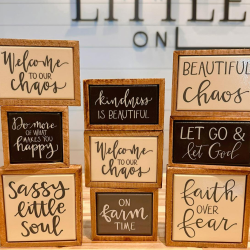 LITTLE
ON
Welcome
TO OUR
chaos
Do more
OF WHAT
MAKES YOU
happy
Sassy
little
soul
kindness
IS BEAUTIFUL
Welcome
TO OUR
chaos
ON
farm
TIME
BEAUTIFUL
chaos
LET GO &
let God
faith
OVER
fear